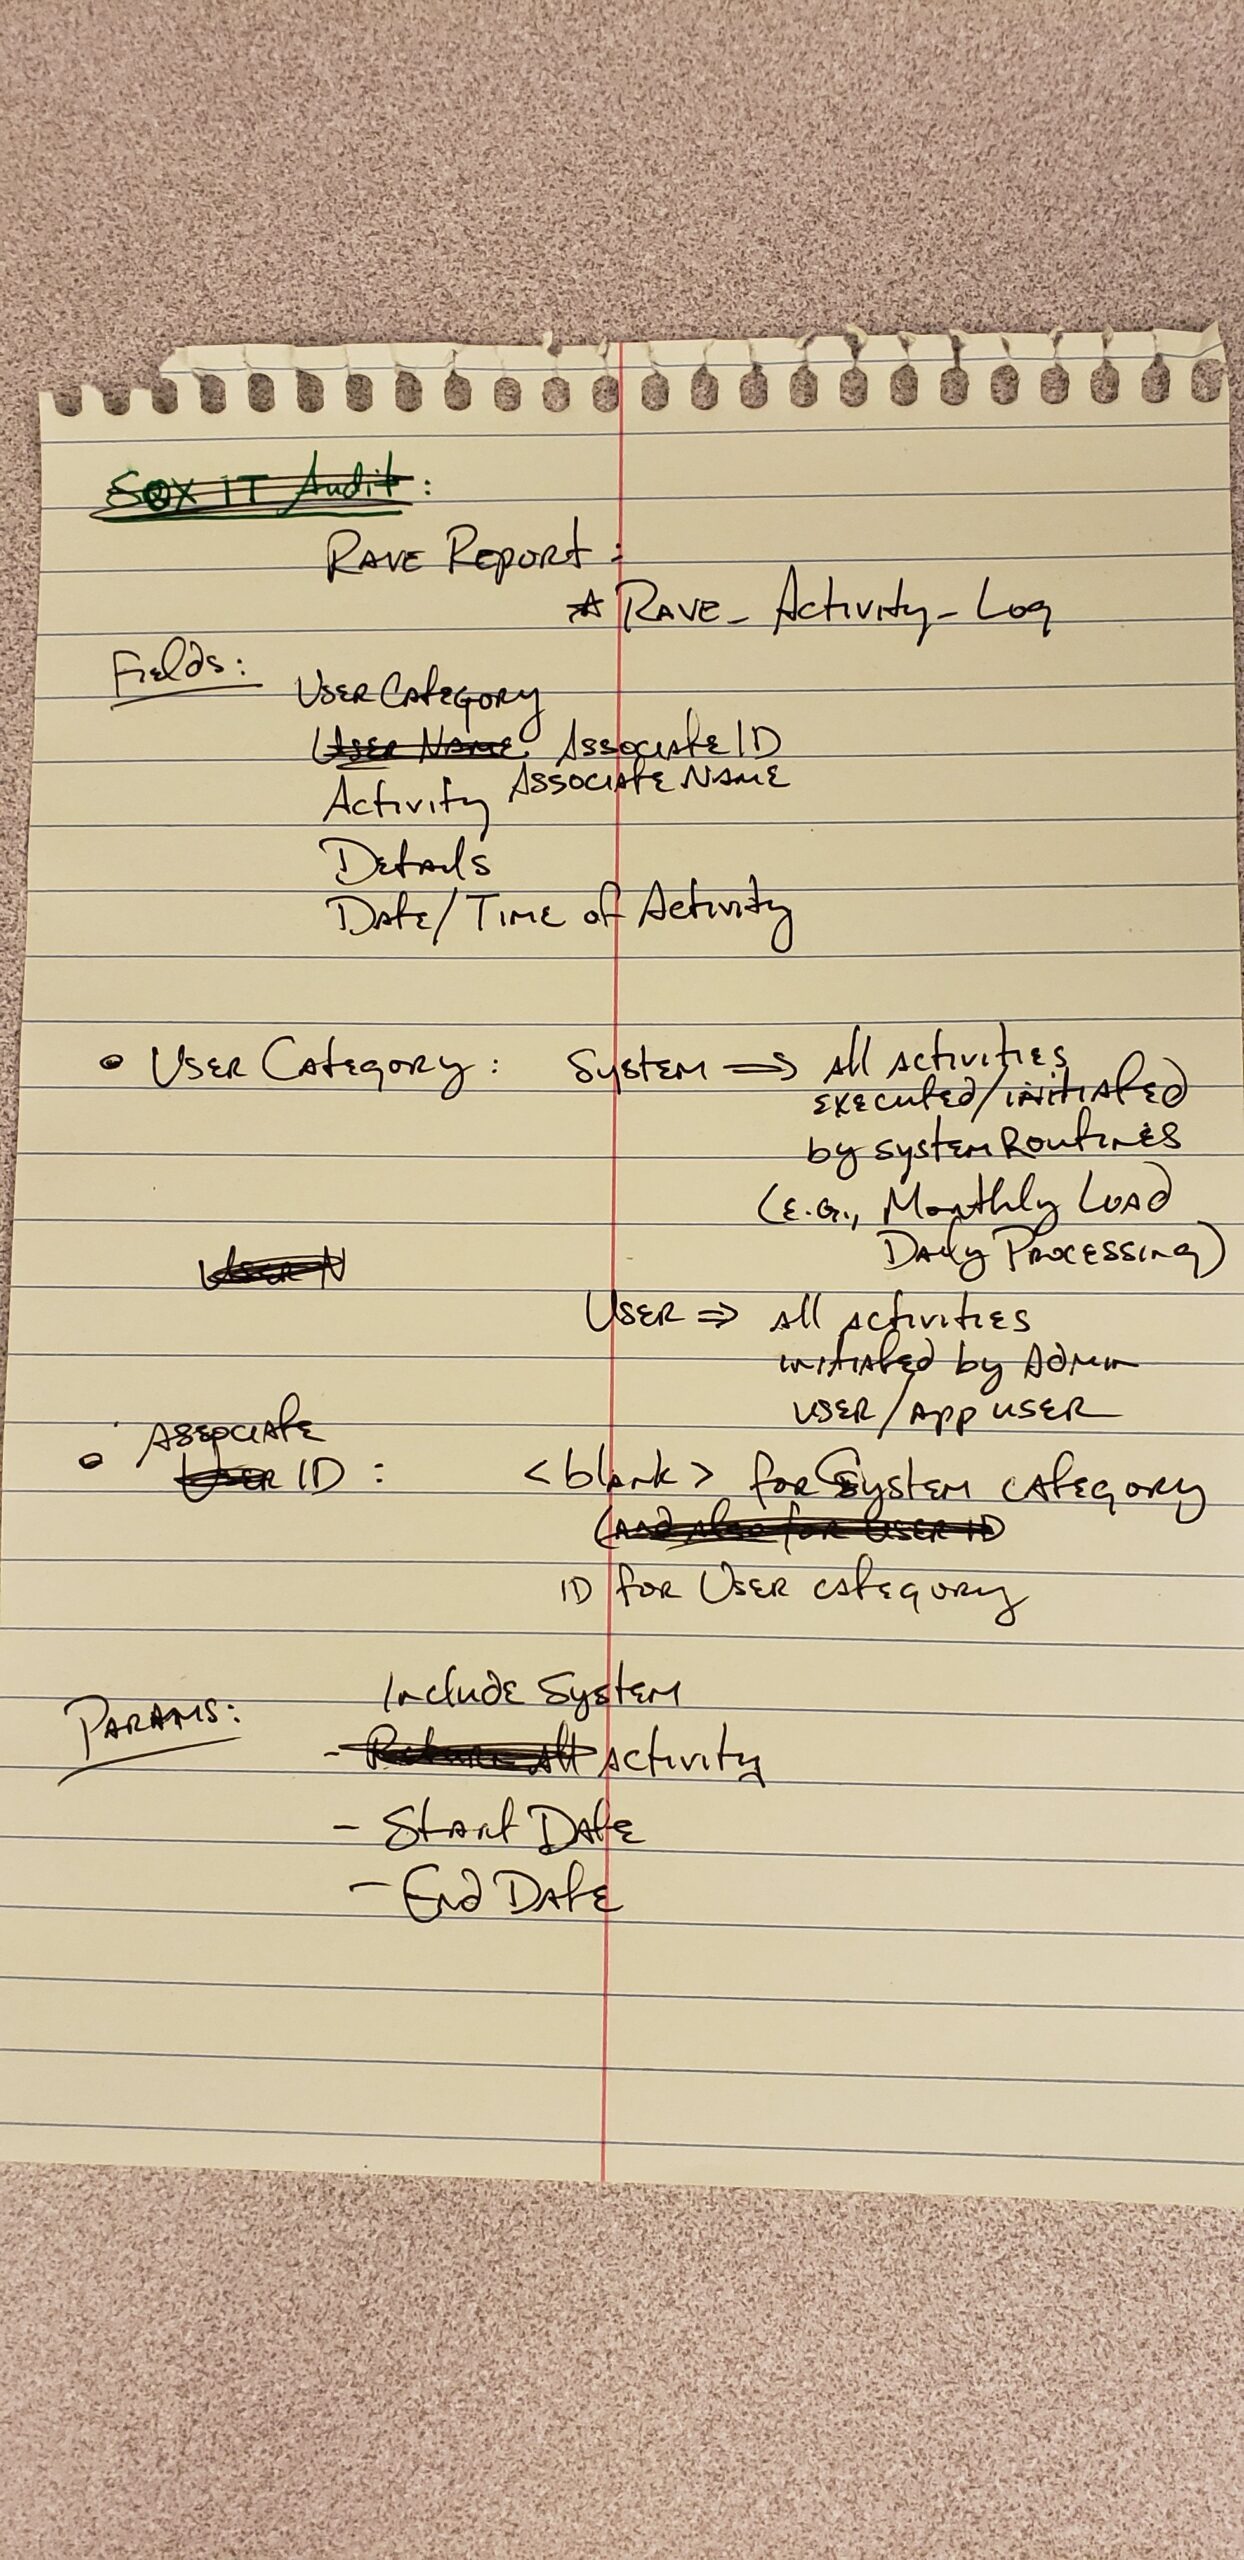 SOX IT Audit:
RAVE REPORT:
* RAVE_Activity_Log
Fields:
USER CATEGORY
USER NAME ASSOCIATE ID
ASSOCIATE NAME
Activity
Details
Date/Time of Activity
• USER CATEGORY: System ⇒ all activities
executed/initiated
by system routines
(E.G., Monthly Load
Daily Processing)
USER N
USER ⇒ all activities
initiated by Admin
USER/App USER
ASSOCIATE
• USER ID: <blank> for System category
(and also for USER ID
ID for USER category
PARAMS:
Include System
- Return All activity
- Start Date
- End Date